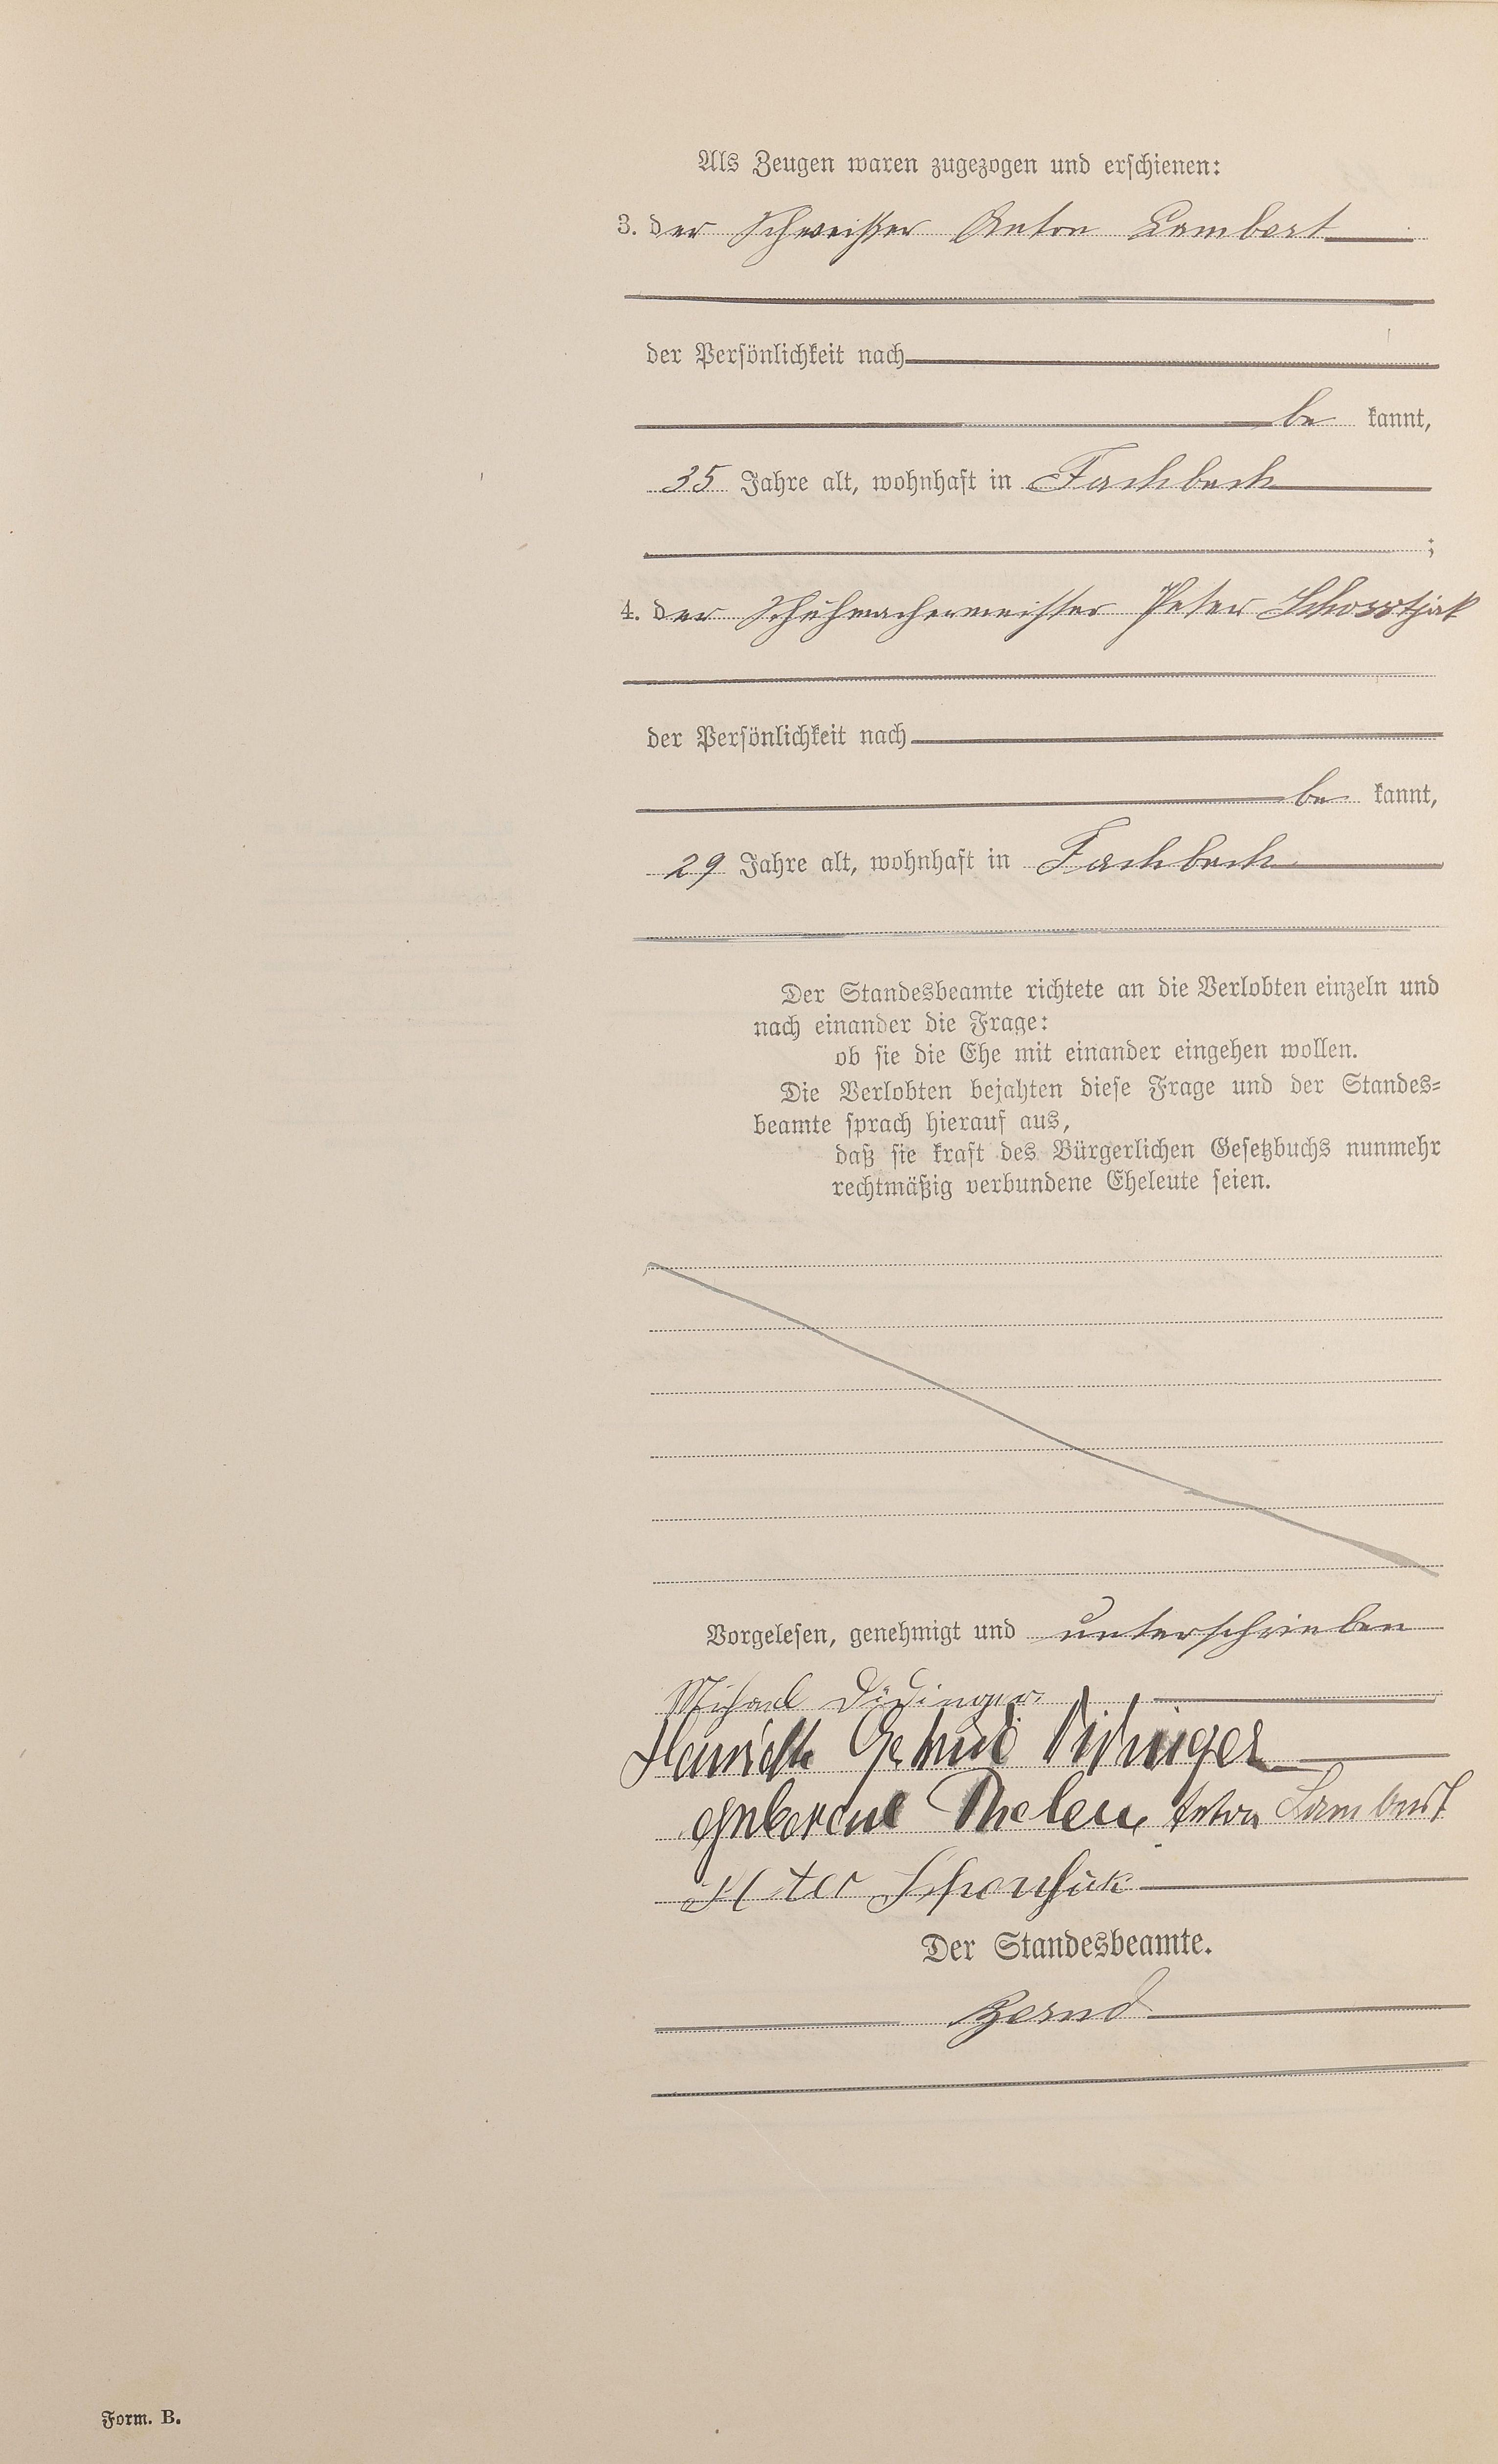 Als Zeugen waren zugezogen und erschienen:
3. der Schweißer Anton Lambert
der Persönlichkeit nach
be kannt,
35 Jahre alt, wohnhaft in Fachbach
;
4. der Schuhmachermeister Peter
der Persönlichkeit nach
be kannt,
29 Jahre alt, wohnhaft in Fachbach
Der Standesbeamte richtete an die Verlobten einzeln und
nach einander die Frage:
ob sie die Ehe mit einander eingehen wollen.
Die Verlobten bejahten diese Frage und der Standes-
beamte sprach hierauf aus,
daß sie kraft des Bürgerlichen Gesetzbuchs nunmehr
rechtmäßig verbundene Eheleute seien.
Vorgelesen, genehmigt und unterschrieben
Michael Didinger.
Didinger
geborene Thelen, Anton Lambert
Peter
Der Standesbeamte.
Form. B.